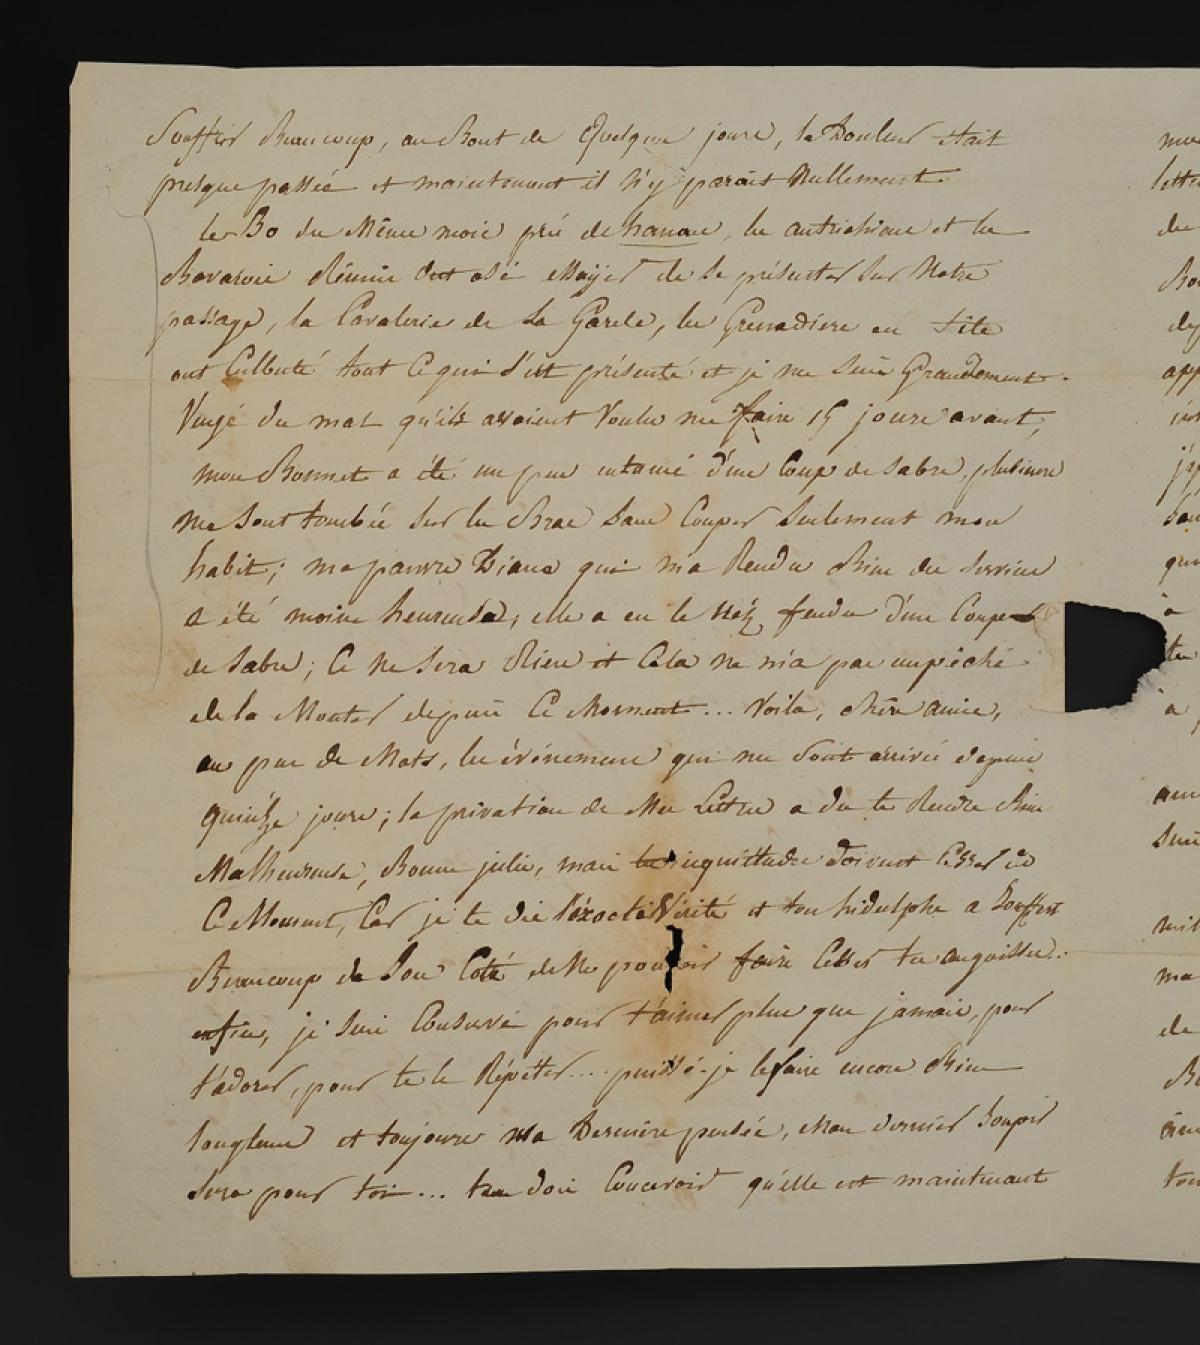 Souffrir Beaucoup, au Bout de Quelques jours, la Douleur était
presque passée et maintenant il n'y parait Nullement.
le 30 du Même mois près de hanau, les autrichiens et les
Bavarois Réunis ont osé essayer de se présenter sur Notre
passage, la Cavalerie de La Garde, les Grenadiers en tête
ont Culbuté tout Ce qui s'est présenté et je me suis Grandement
Vengé du mal qu'ils avaient Voulu me faire 15 jours avant,
mon Bonnet a été un peu entamé d'un Coup de sabre, plusieurs
me sont tombés sur les Bras sans Couper seulement mon
habit; ma pauvre Diane qui m'a Rendu Bien des services
a été moins heureuse; elle a eu le Néz fendu d'un Coup
de sabre; Ce ne sera Rien et Cela ne m'a pas empêché
de la Monter depuis Ce Moment... Voila, chère amie,
en peu de Mots, les événemens qui me sont arrivés depuis
quinze jours; la privation de Mes Lettres a du te Rendre Bien
Malheureuse, Bonne julie, mais tes inquiétudes doivent Cesser en
Ce Moment, Car je te dis l'éxacte Vérité et ton hidulphe a souffert
Beaucoup de Son Coté de Ne pouvoir faire Cesser tes angoisses..
enfin, je suis Conservé pour t'aimer plus que jamais, pour
t'adorer, pour te le Répéter... puissé-je le faire encore Bien
longtems et toujours Ma Dernière pensée, Mon dernier soupir
sera pour toi... tu dois Concevoir qu'elle est maintenant